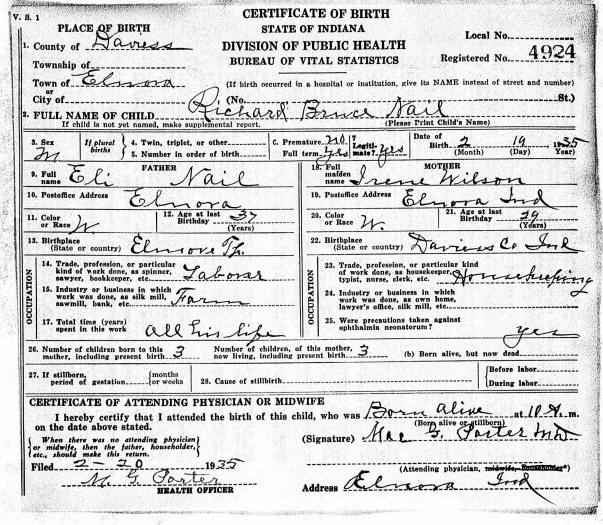 V. S. 1
CERTIFICATE OF BIRTH
PLACE OF BIRTH
STATE OF INDIANA
Local No.
1. County of Daviess
DIVISION OF PUBLIC HEALTH
Registered No. 4924
Township of
BUREAU OF VITAL STATISTICS
Town of Elnora
or
(If birth occurred in a hospital or institution, give its NAME instead of street and number)
City of (No. St.)
2. FULL NAME OF CHILD Richard Bruce Nail
If child is not yet named, make supplemental report. (Please Print Child's Name)
3. Sex M
If plural births
4. Twin, triplet, or other
5. Number in order of birth
C. Premature no
Full term yes
7 Legitimate? yes
Date of Birth 2 19 1935
(Month) (Day) (Year)
FATHER
9. Full name Eli Nail
10. Postoffice Address Elnora
11. Color or Race W.
12. Age at last Birthday 37 (Years)
13. Birthplace (State or country) Elmore Tp.
OCCUPATION
14. Trade, profession, or particular kind of work done, as spinner, sawyer, bookkeeper, etc. Laborer
15. Industry or business in which work was done, as silk mill, sawmill, bank, etc. Farm
17. Total time (years) spent in this work all his life
MOTHER
18. Full maiden name Irene Wilson
19. Postoffice Address Elnora Ind
20. Color or Race W.
21. Age at last Birthday 29 (Years)
22. Birthplace (State or country) Daviess Co Ind
OCCUPATION
23. Trade, profession, or particular kind of work done, as housekeeper, typist, nurse, clerk, etc. Housekeeping
24. Industry or business in which work was done, as own home, lawyer's office, silk mill, etc.
25. Were precautions taken against ophthalmia neonatorum? yes
26. Number of children born to this mother, including present birth 3
Number of children, of this mother, now living, including present birth 3
(b) Born alive, but now dead
27. If stillborn, period of gestation {months or weeks
28. Cause of stillbirth
{Before labor
During labor
CERTIFICATE OF ATTENDING PHYSICIAN OR MIDWIFE
I hereby certify that I attended the birth of this child, who was Born alive at 10 A. m.
on the date above stated. (Born alive or stillborn)
When there was no attending physician or midwife, then the father, householder, etc., should make this return.
(Signature) Mac G. Porter MD
Filed 2-20 1935
(Attending physician, midwife, householder*)
M. G. Porter
HEALTH OFFICER
Address Elnora Ind